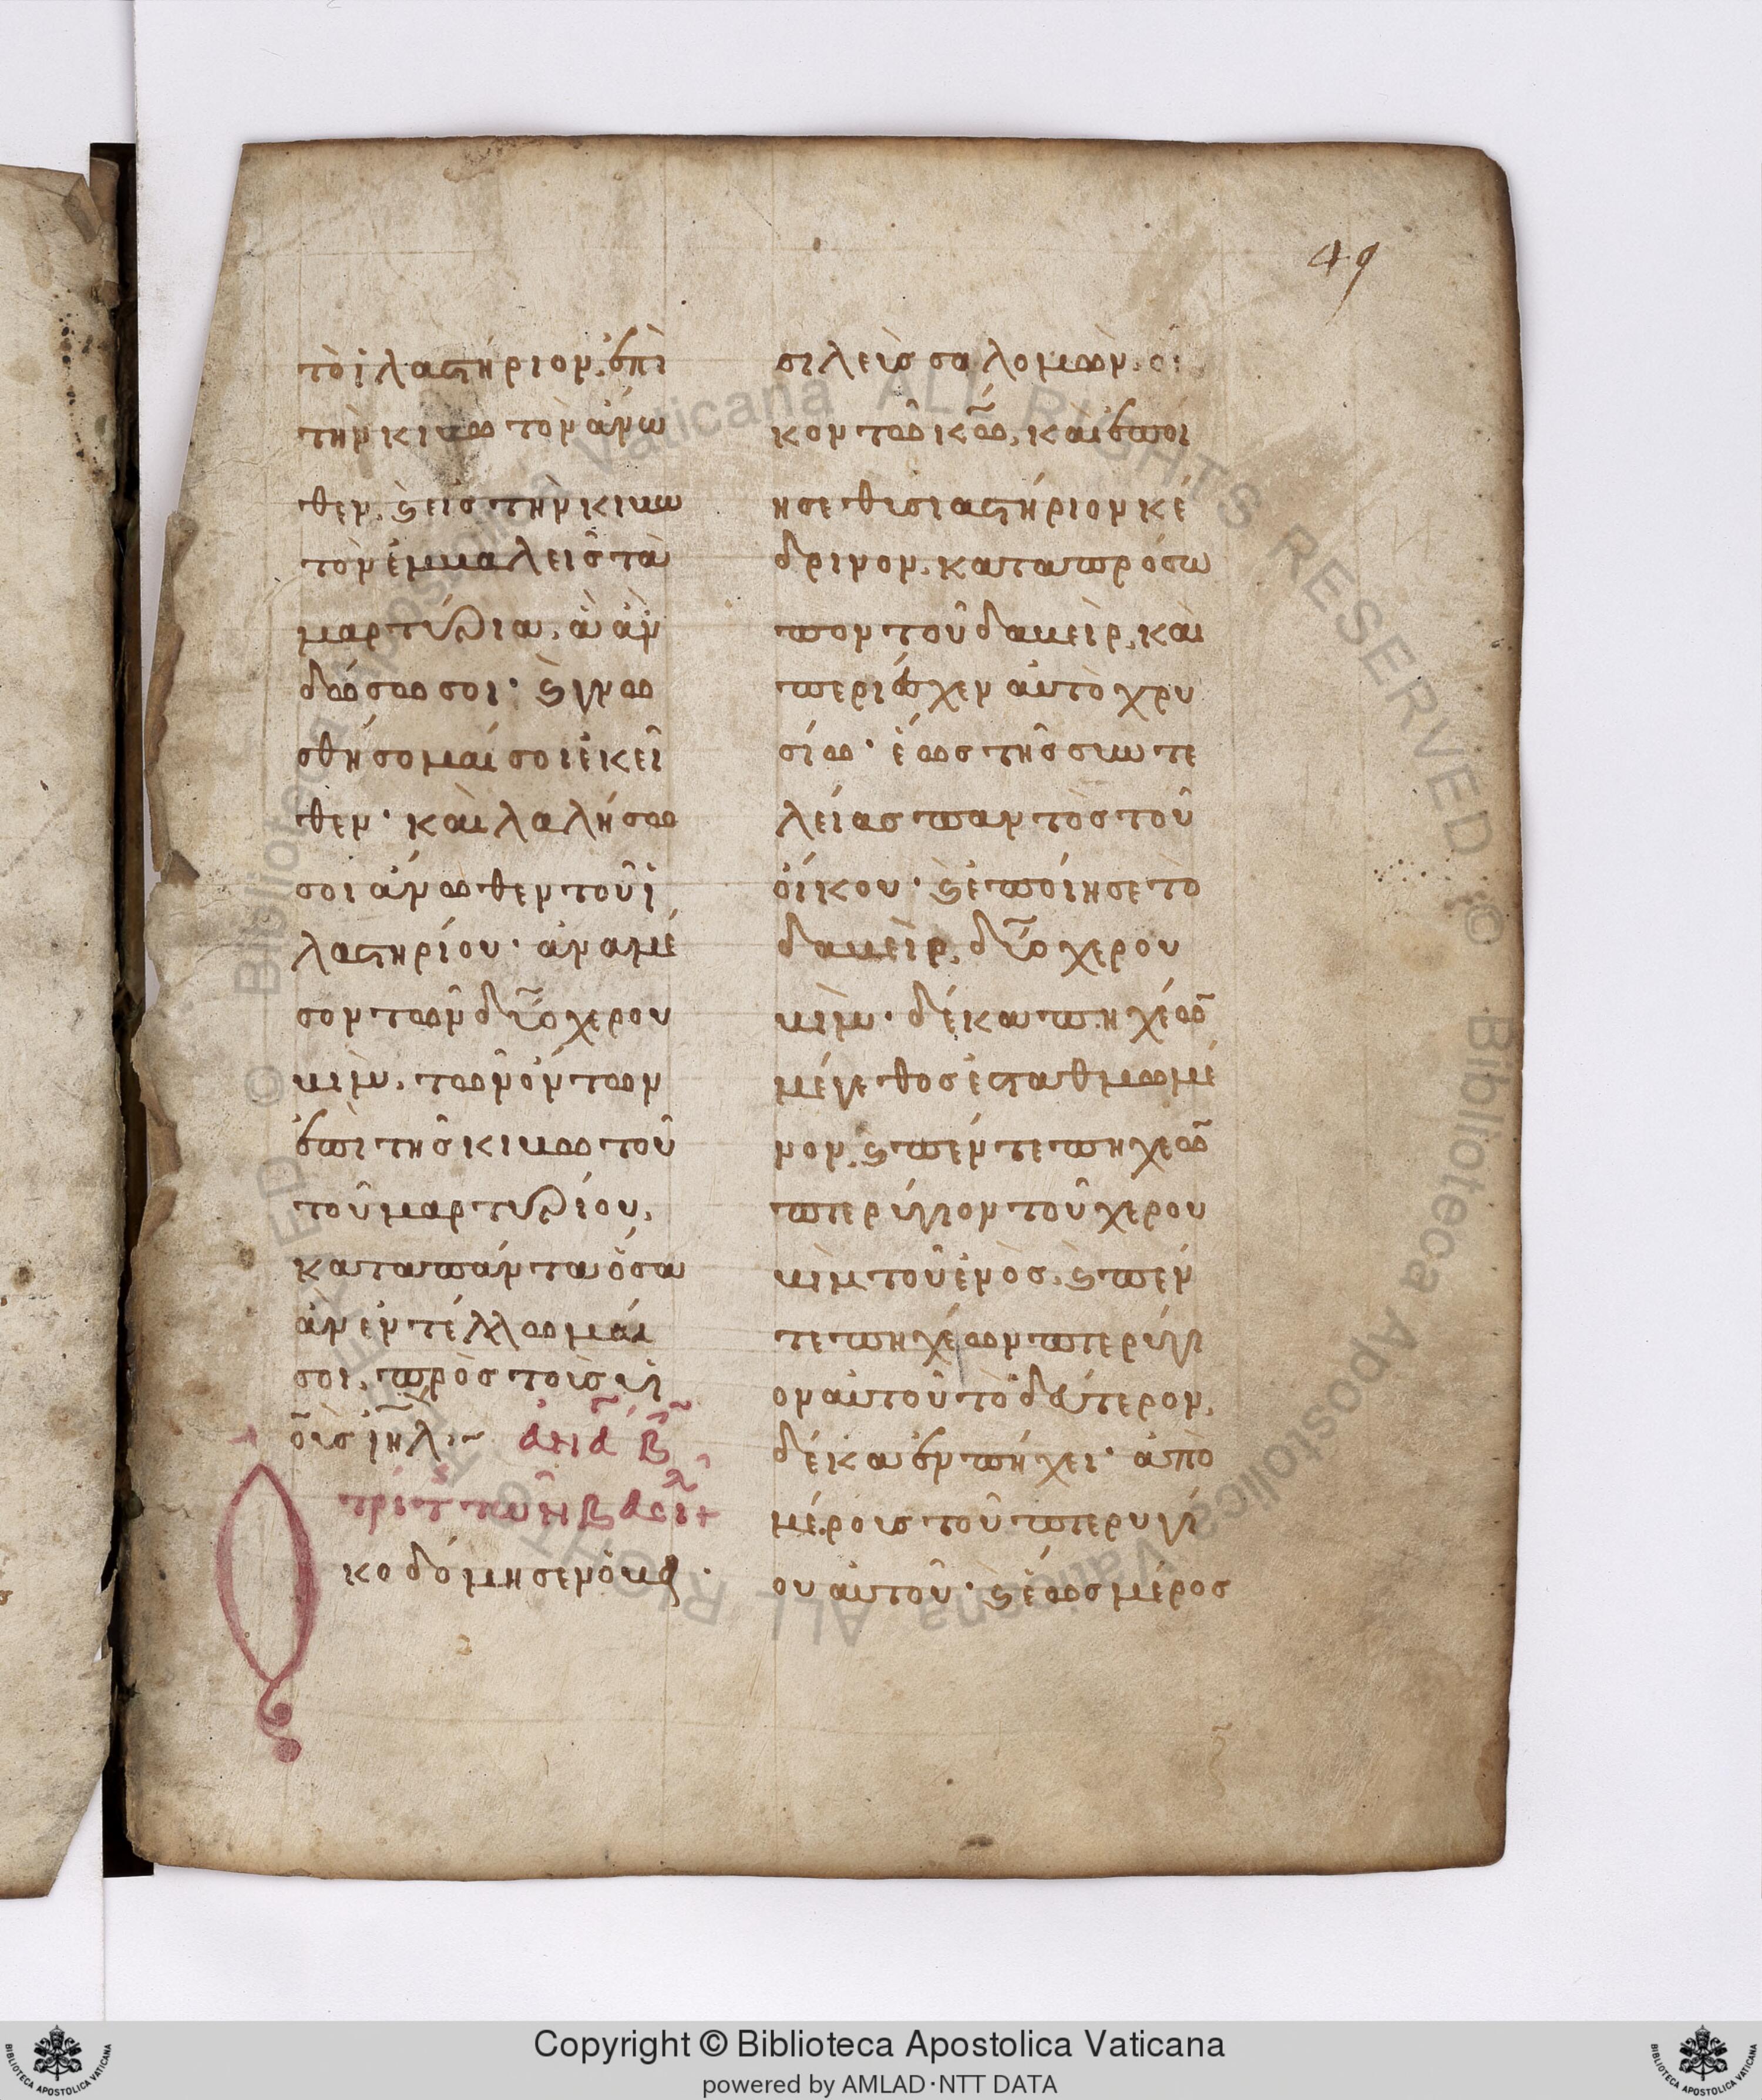 49
τὸ ἱλαϛήριον, ἐπὶ
τὴν κιβωτὸν ἄνω
θεν, ϗ εἰς τὴν κιβω
τὸν ἐμβαλεῖς τὰ
μαρτύρια, ἃ ἂν
δώσω σοι· ϗ γνω
σθήσομαί σοι ἐκεῖ
θεν· καὶ λαλήσω
σοι ἄνωθεν τοῦ ἱ
λαϛηρίου· ἀναμέ
σον τῶν δύο χερου
βὶμ, τῶν ὄντων
ἐπὶ τῆς κιβωτοῦ
τοῦ μαρτυρίου,
κατὰ πάντα ὅσα
ἂν ἐντέλλωμαί
σοι, πρὸς τοὺς υἱ
οὺς ιηλ·
τρίτ τῶν βασι
Ωκοδόμησε
σιλεὺς σαλομὼν, οἶ
κον τῶ κω, καὶ ἐποί
ησε θυσιαϛήριον κέ
δρινον, κατὰ πρόσω
πον τοῦ δαβεὶρ, καὶ
περιέσχεν αὐτὸ χρυ
σίω· ἕως τῆς συντε
λείας παντὸς τοῦ
οἴκου· ϗ ἐποίησε τὸ
δαβεὶρ, δύο χερου
βὶμ· δέκα πηχέω
μέγεθος ἐϛαθμωμέ
νον, ϗ πέντε πηχεω
πτερύγιον τοῦ χερου
βὶμ τοῦ ἑνὸς, ϗ πέν
τε πηχέων πτερύγι
ον αὐτοῦ τὸ δεύτερον,
δέκα ἐν πήχει· ἀπὸ
μέρους τοῦ πτερυγί
ου αὐτοῦ· ϗ ἕως μέρος
© Biblioteca Apostolica Vaticana ALL RIGHTS RESERVED
Copyright © Biblioteca Apostolica Vaticana
powered by AMLAD·NTT DATA
BIBLIOTECA APOSTOLICA VATICANA
BIBLIOTECA APOSTOLICA VATICANA